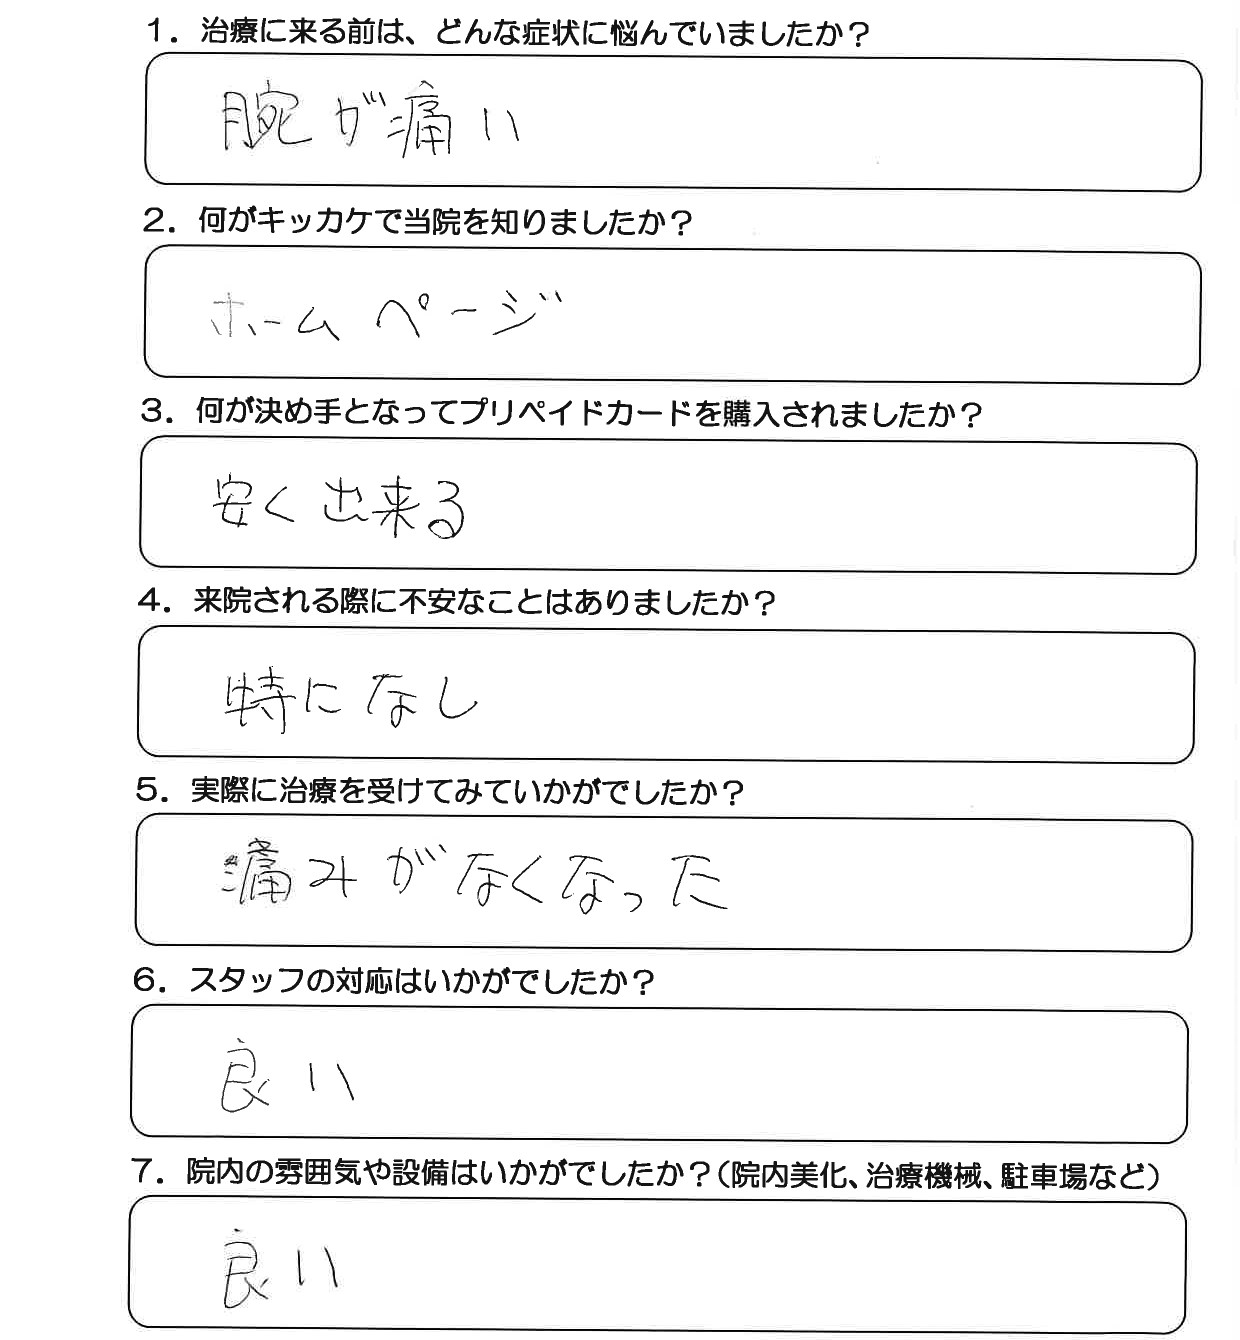 1．治療に来る前は、どんな症状に悩んでいましたか？
腕が痛い
2．何がキッカケで当院を知りましたか？
ホームページ
3．何が決め手となってプリペイドカードを購入されましたか？
安く出来る
4．来院される際に不安なことはありましたか？
特になし
5．実際に治療を受けてみていかがでしたか？
痛みがなくなった
6．スタッフの対応はいかがでしたか？
良い
7．院内の雰囲気や設備はいかがでしたか？（院内美化、治療機械、駐車場など）
良い